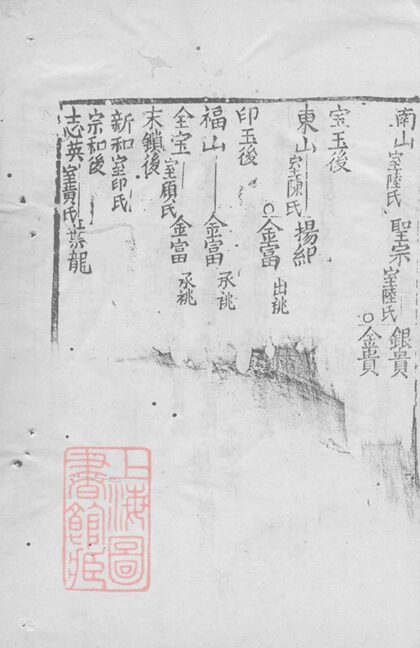 南山室陸氏 聖宗室陸氏 銀貴
○金貴
宝玉後
東山室陳氏 揚卯
○金富出祧
印玉後
福山 金富承祧
全宝室顧氏 金富承祧
末鎖後
新和室印氏
宗和後
志英室費氏 葉龍
上海圖
書館藏